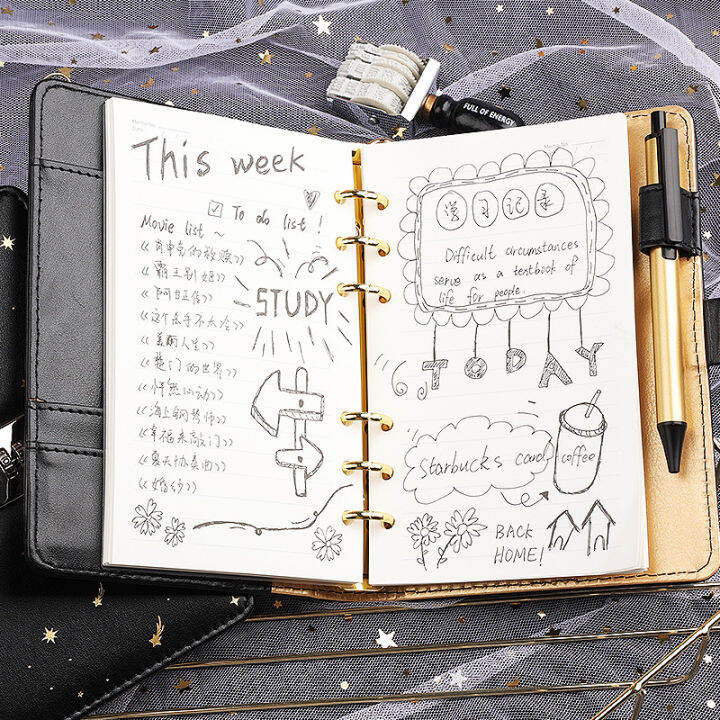 This week
☑ To do list!
Movie list ~
《肖申克的救赎》
《霸王别姬》
《阿甘正传》
《这个杀手不太冷》
《美丽人生》
《楚门的世界》
《怦然心动》
《海上钢琴师》
《幸福来敲门》
《夏天协奏曲》
《婚纱》
STUDY
FULL OF ENERGY
学习记录
Difficult circumstances
serve as a textbook of
life for people.
TODAY
Starbucks card
coffee
BACK
HOME!